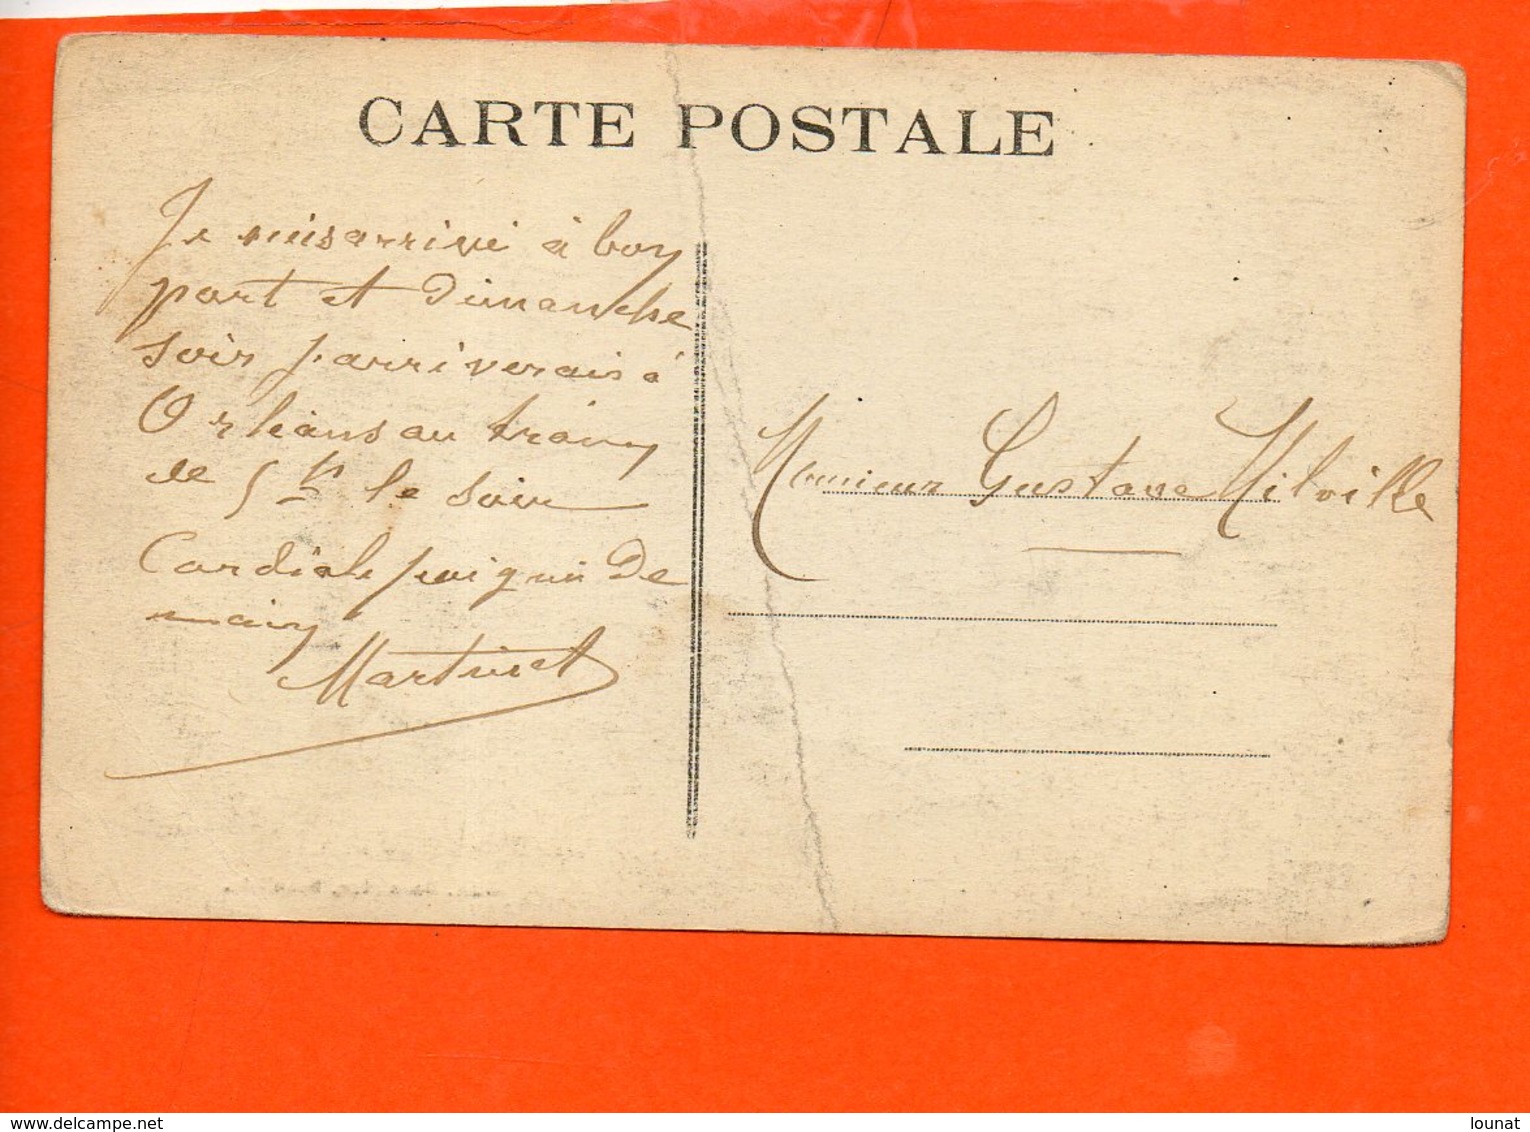 CARTE POSTALE
Je suis arrivé à bon
port et Dimanche
soir j'arriverais à
Orléans au train
de 5h le soir
Cordiale poigné De
main
Martinet
Monsieur Gustave Milville
www.delcampe.net
lounat